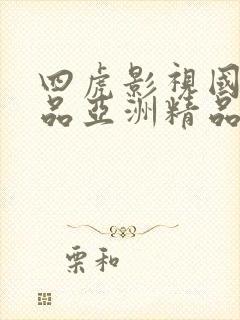 四虎影視國
品亞洲精品
栗和